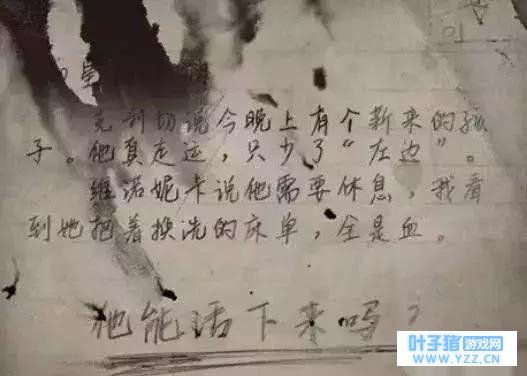 克利切说今晚上有个新来的孩
子。他真走运，只少了“左边”。
维诺妮卡说他需要休息，我看
到她抱着换洗的床单，全是血。
他能活下来吗？
叶子猪游戏网
WWW.YZZ.CN